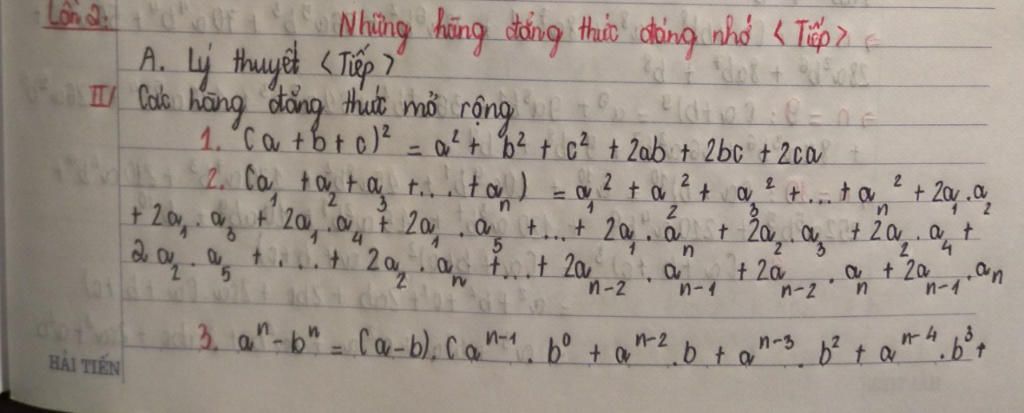 Lần 2:
Những hằng đẳng thức đáng nhớ <Tiếp>
A. Lý thuyết <Tiếp>
II/ Các hằng đẳng thức mở rộng
1. (a + b + c)² = a² + b² + c² + 2ab + 2bc + 2ca
2. (a₁ + a₂ + a₃ + ... + aₙ) = a₁² + a₂² + a₃² + ... + aₙ² + 2a₁.a₂
+ 2a₁.a₃ + 2a₁.a₄ + 2a₁.a₅ + ... + 2a₁.aₙ + 2a₂.a₃ + 2a₂.a₄ +
2a₂.a₅ + ... + 2a₂.aₙ + ... + 2aₙ₋₂.aₙ₋₁ + 2aₙ₋₂.aₙ + 2aₙ₋₁.aₙ
3. aⁿ - bⁿ = (a-b).(aⁿ⁻¹.b⁰ + aⁿ⁻².b + aⁿ⁻³.b² + aⁿ⁻⁴.b³ +
HẢI TIẾN